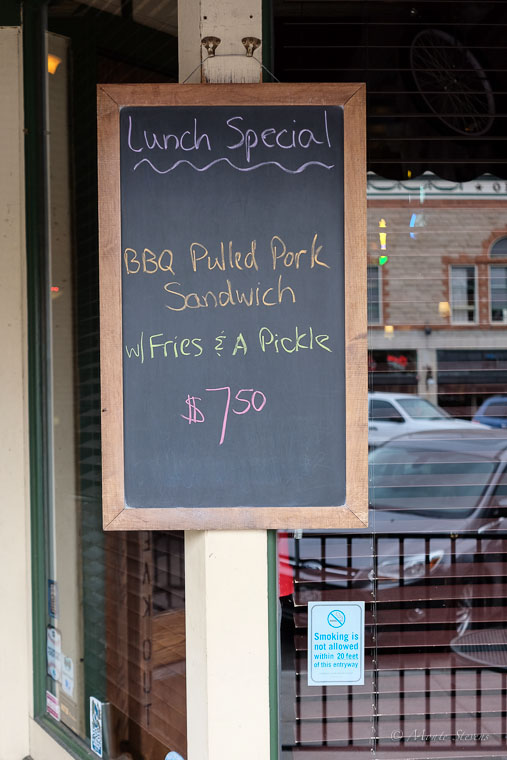 Lunch Special
BBQ Pulled Pork
Sandwich
w/ Fries & A Pickle
$7.50
Smoking is
not allowed
within 20 feet
of this entryway
© Monte Stevens